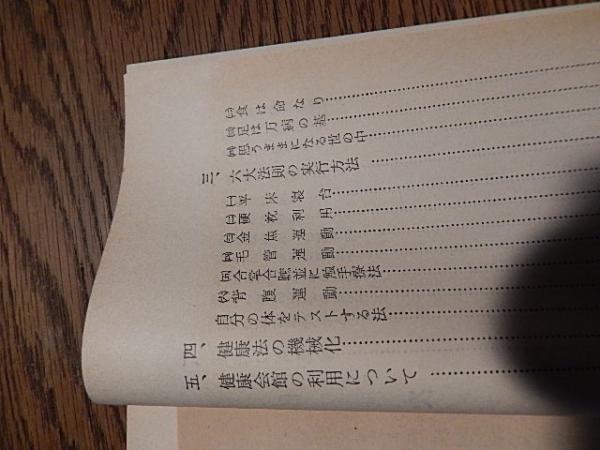 ㈡食は命なり
㈢足は万病の基
㈣思うままになる世の中
三、六大法則の実行方法
㈠平床寝台
㈡硬枕利用
㈢金魚運動
㈣毛管運動
㈤合掌合蹠並に触手療法
㈥背腹運動
自分の体をテストする法
四、健康法の機械化
五、健康会館の利用について